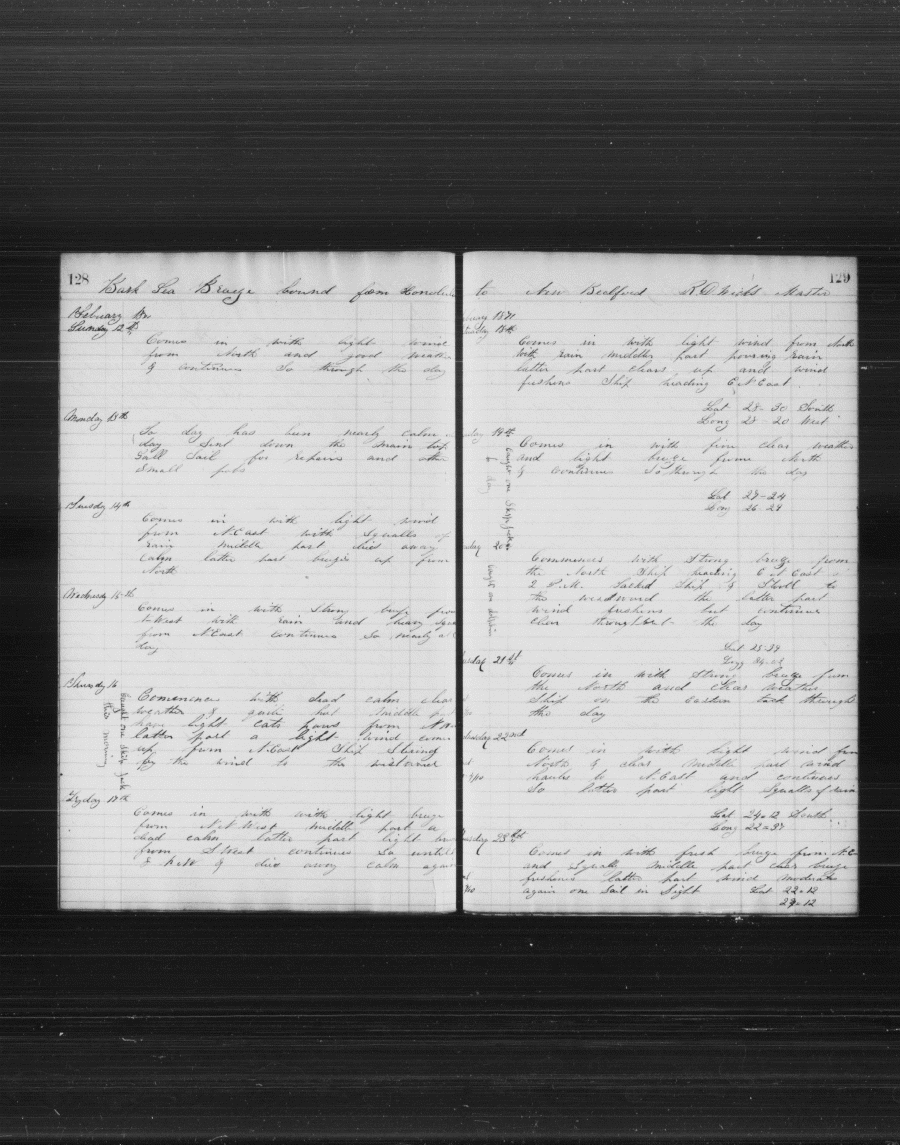 128
Bark Sea Breeze bound from Honolulu
February
Sunday 12th
Comes in with light wind
from North and good weather
& continues so through the day
Monday 13th
So day has been nearly calm
day Sent down the main top
Gall Sail for repairs and other
Small jobs
Tuesday 14th
Comes in with light wind
from N.East with Squalls of
rain middle part dies away
calm latter part breezes up from
North
Wednesday 15th
Comes in with Strong breeze from
West with rain and heavy
from N.East continues so nearly all
day
Thursday 16
Caught one Skip Jack
this morning
Commences with dead calm clear
weather & quite hot middle
have light cats paws from
latter part a light wind comes
up from N.East Ship Steering
by the wind to the
Fryday 17th
Comes in with with light breeze
from N.N.West middle part a
dead calm latter part light
from S.West continues so until
& dies away calm again
to New Bedford R D Wicks Master
129
1871
18th
Comes in with light wind from North
with rain middle part pouring rain
latter part clears up and wind
freshens Ship heading E.N.East
Lat 28-30 South
Long 28-20 West
19th
Caught one Skip Jack
day
Comes in with fine clear weather
and light breeze frome North
& continues So through the day
Lat 27-24
Long 26-29
20th
Caught one dolphin
Commences with Strong breeze from
the North Ship heading E.N.East
2 P.M. Tacked Ship & Stood to
the westward the latter part
wind freshens but continues
clear throughout the day
Lat 25-39
21st
Comes in with Strong breeze from
the North and clear weather
Ship on the Eastern tack through
the day
22nd
Comes in with light wind from
North & clear middle part wind
hauls to N.East and continues
So latter part light Squalls of rain
Lat 24=12 South
Long 22=37
23rd
Comes in with fresh breeze from N.E
and Squally middle part clear breeze
freshens latter part wind moderate
again one Sail in Sight Lat 22=12